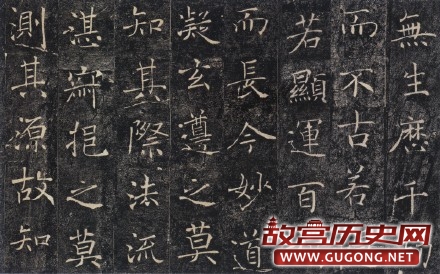 無生歷千
而不古若
若顯運百
而長今妙道
凝玄遵之莫
知其際法流
湛寂挹之莫
測其源故知
故宫历史网
WWW.GUGONG.NET